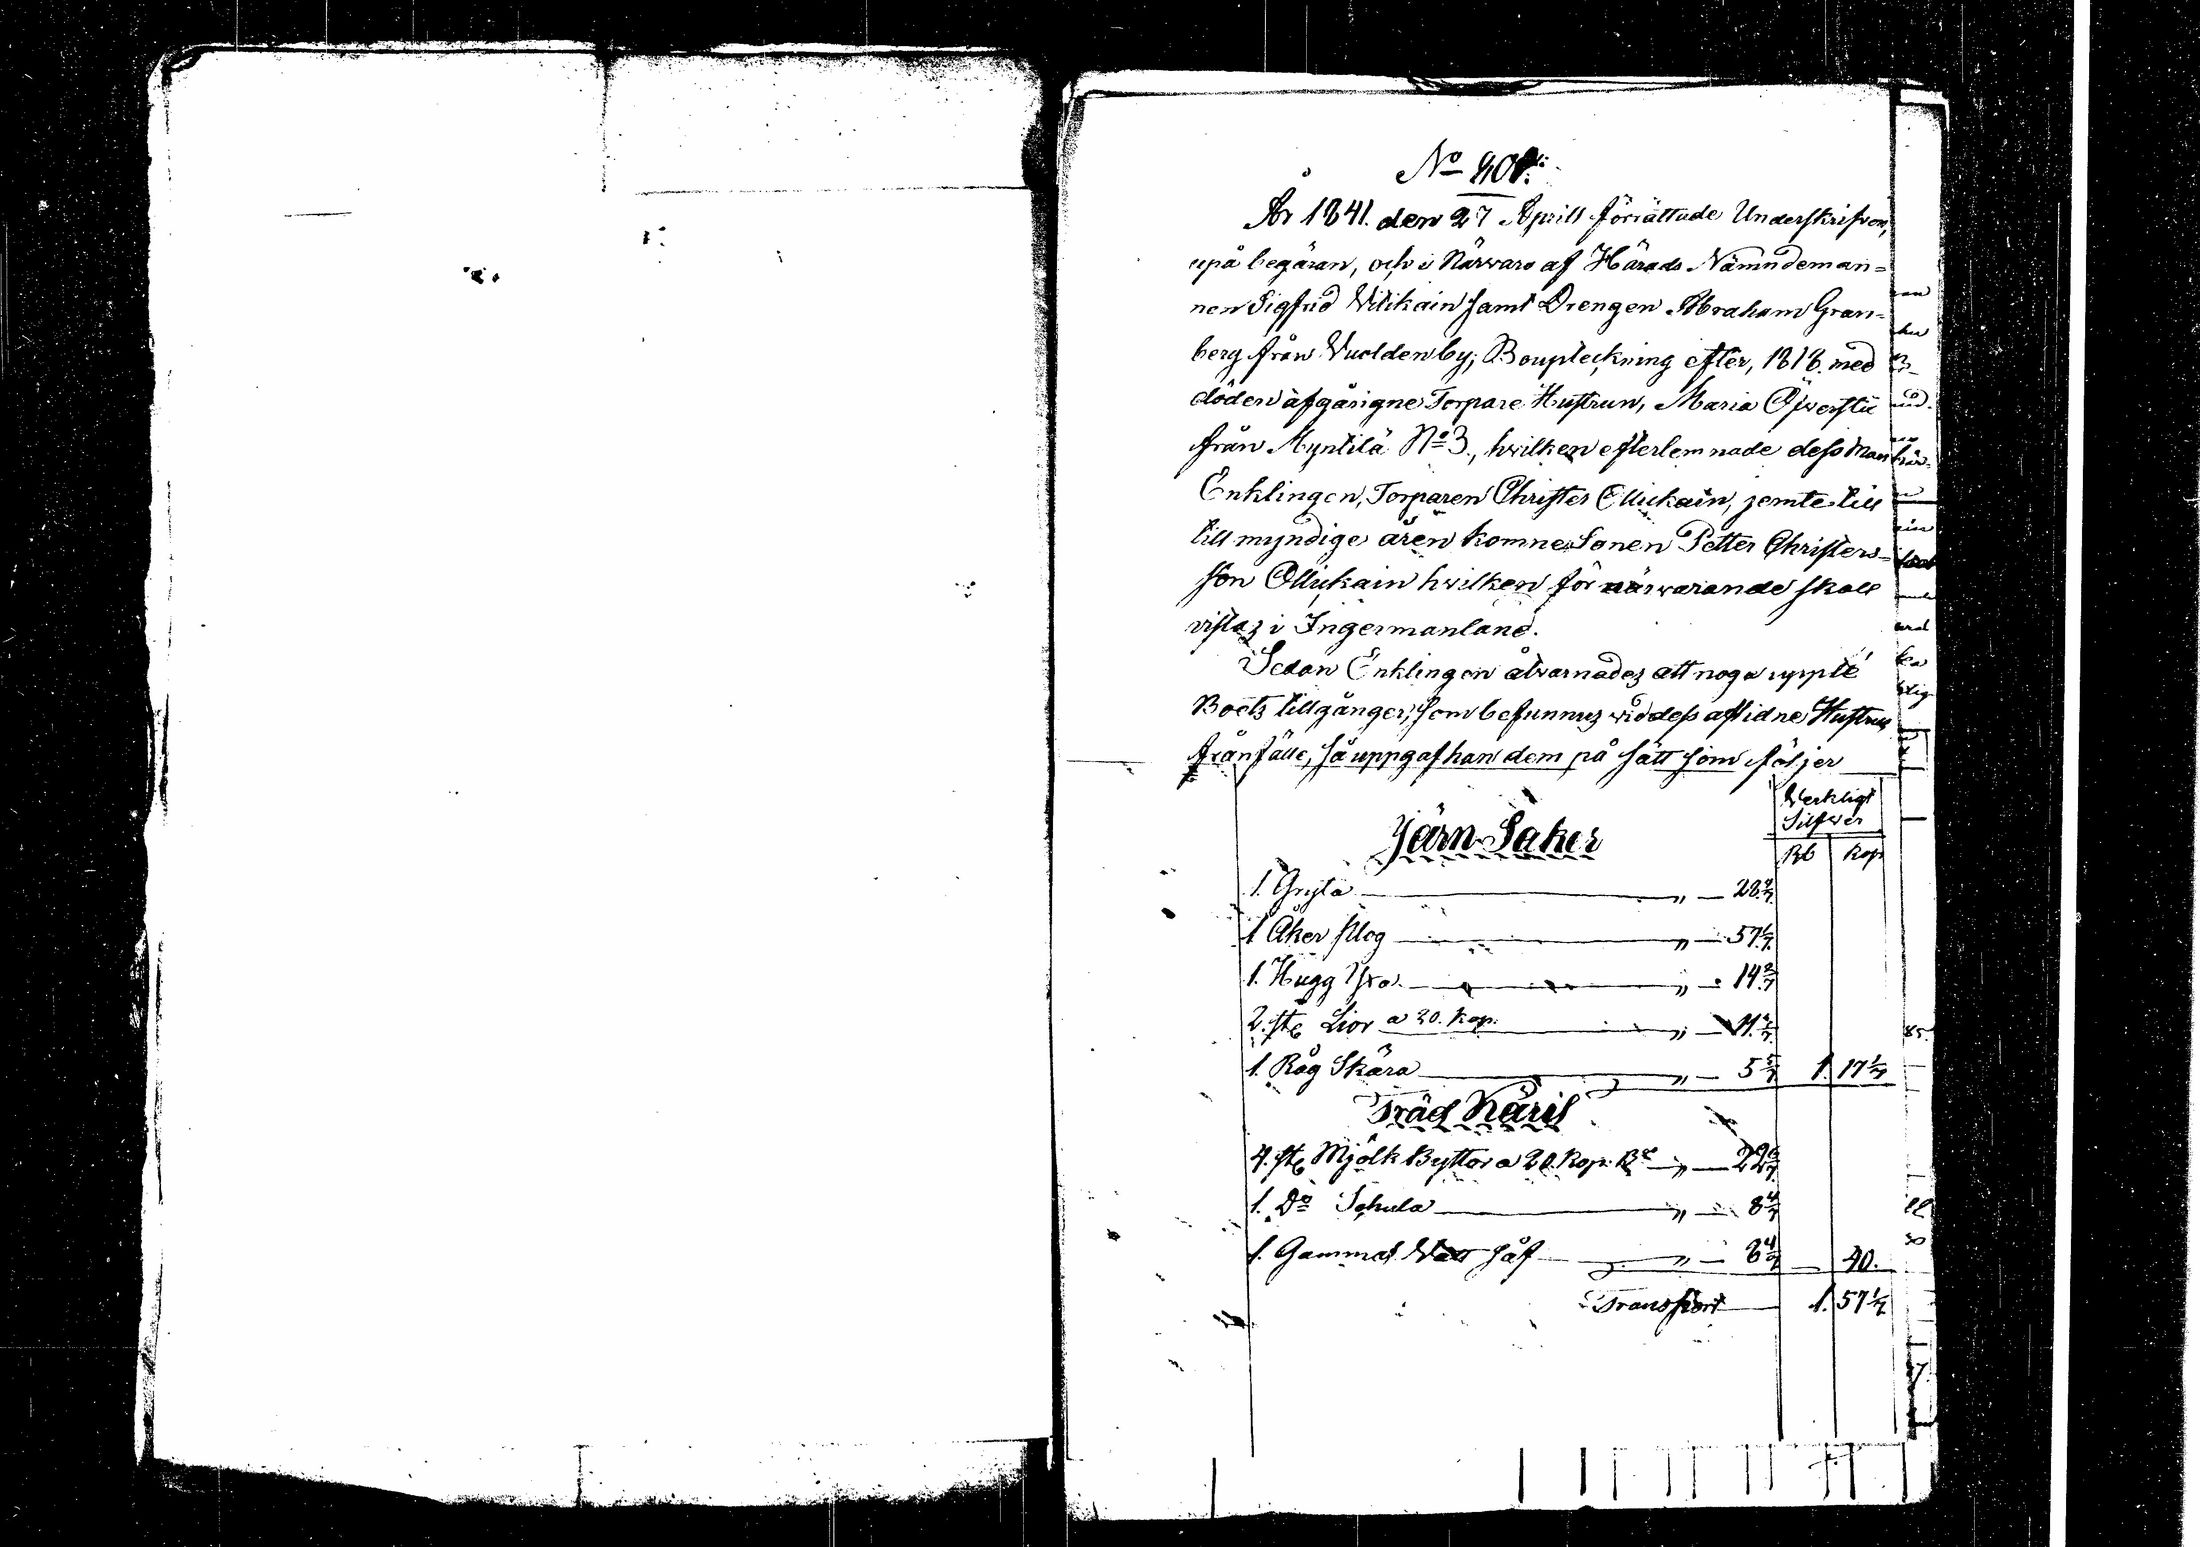 No 201.
År 1841. den 27 Aprill förrättade Underskrifven,
upå begäran, och i Närwaro af Härads Nämndeman=
nen Sigfrid Wilikain samt Drengen Abraham Gran=
berg från Wuolden by; Bouptekning efter, 1818. med
döden afgångne Torpare Hustrun, Maria Öfverstü
från Myntilä No 3., hwilken efterlemnade dess Man
Enklingen, Torparen Christer Ollickain, jemte till
till myndige åren komne Sonen Petter Christers=
son Ollickain hwilken för närwarande skall
vistaz i Ingermanland.
Sedan Enklingen åtwarnadez att noga uppté
Boetz tillgånger, som befunnuz wid dess aflidne Hustrus
frånfälle, så uppgaf han dem på sätt som följer
Werkligt
Silfwer
Järn Saker
Rb Kop
1. Gryta — " — 28 4/7
1 Åker plog — " — 57 1/7
1. Hugg Yxa — " — 14 2/7
2. stc Lior a 20. Kop. — " — 11 3/7
1. Råg Skära — " — 5 5/7 1. 17 1/7
Träd Käril
4. stc Mjölk Byttor a 20. Kop. Bco — " — 22 6/7
1. Do Schula — " — 8 4/7
1. Gammal Watt Såf — " — 8 4/7 — 40.
Transport — 1. 57 1/7